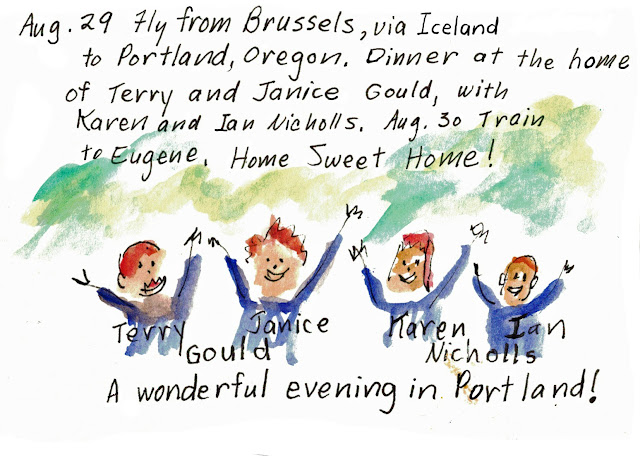 Aug. 29 Fly from Brussels, via Iceland
to Portland, Oregon. Dinner at the home
of Terry and Janice Gould, with
Karen and Ian Nicholls. Aug. 30 Train
to Eugene. Home Sweet Home!
Terry Janice Karen Ian
Gould Nicholls
A wonderful evening in Portland!